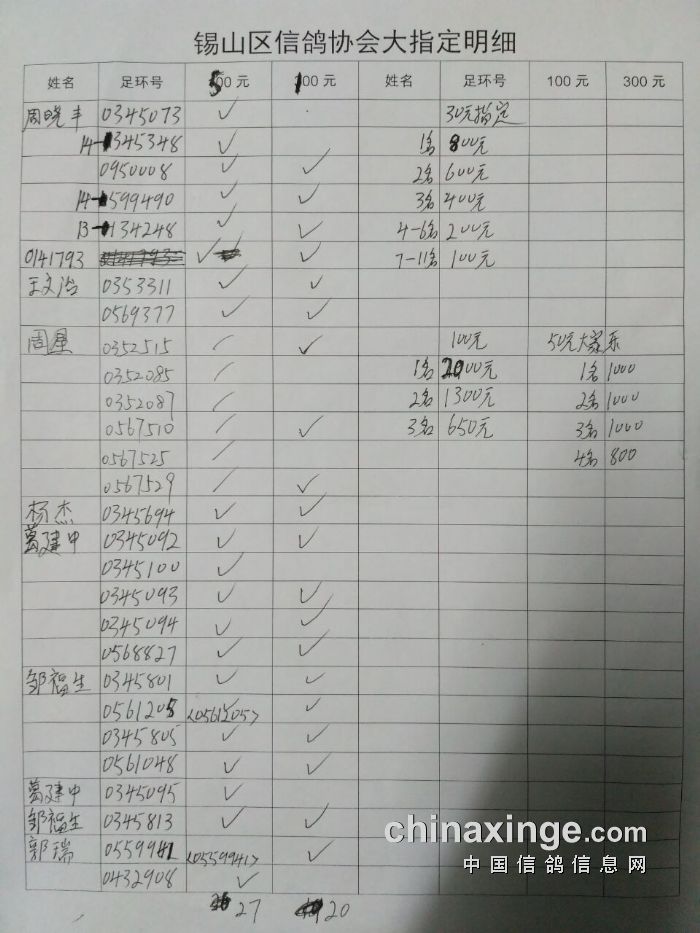 锡山区信鸽协会大指定明细
姓名 足环号 500元 100元 姓名 足环号 100元 300元
周晓丰 0345073 ✓ 30元指定
14-345348 ✓ 1名 800元
0950008 ✓ ✓ 2名 600元
14-599490 ✓ ✓ 3名 400元
13-134248 ✓ ✓ 4-6名 200元
0141793 ✓ ✓ 7-11名 100元
王文治 0353311 ✓ ✓
0569377 ✓ ✓
周星 0352515 ✓ ✓ 100元 50元大家乐
0352085 ✓ 1名 2000元 1名 1000
0352087 ✓ 2名 1300元 2名 1000
0567510 ✓ ✓ 3名 650元 3名 1000
0567525 ✓ 4名 800
0567529 ✓ ✓
杨杰 0345694 ✓ ✓
葛建中 0345092 ✓ ✓
0345100 ✓
0345093 ✓ ✓
0345094 ✓ ✓
0568827 ✓ ✓
邹福生 0345801 ✓ ✓
0561205 <0561205> ✓ ✓
0345805 ✓ ✓
0561048 ✓ ✓
葛建中 0345095 ✓
邹福生 0345813 ✓ ✓
郭瑞 0559941 <0559941> ✓
0432908 ✓
27 20
chinaxinge.com
中国信鸽信息网